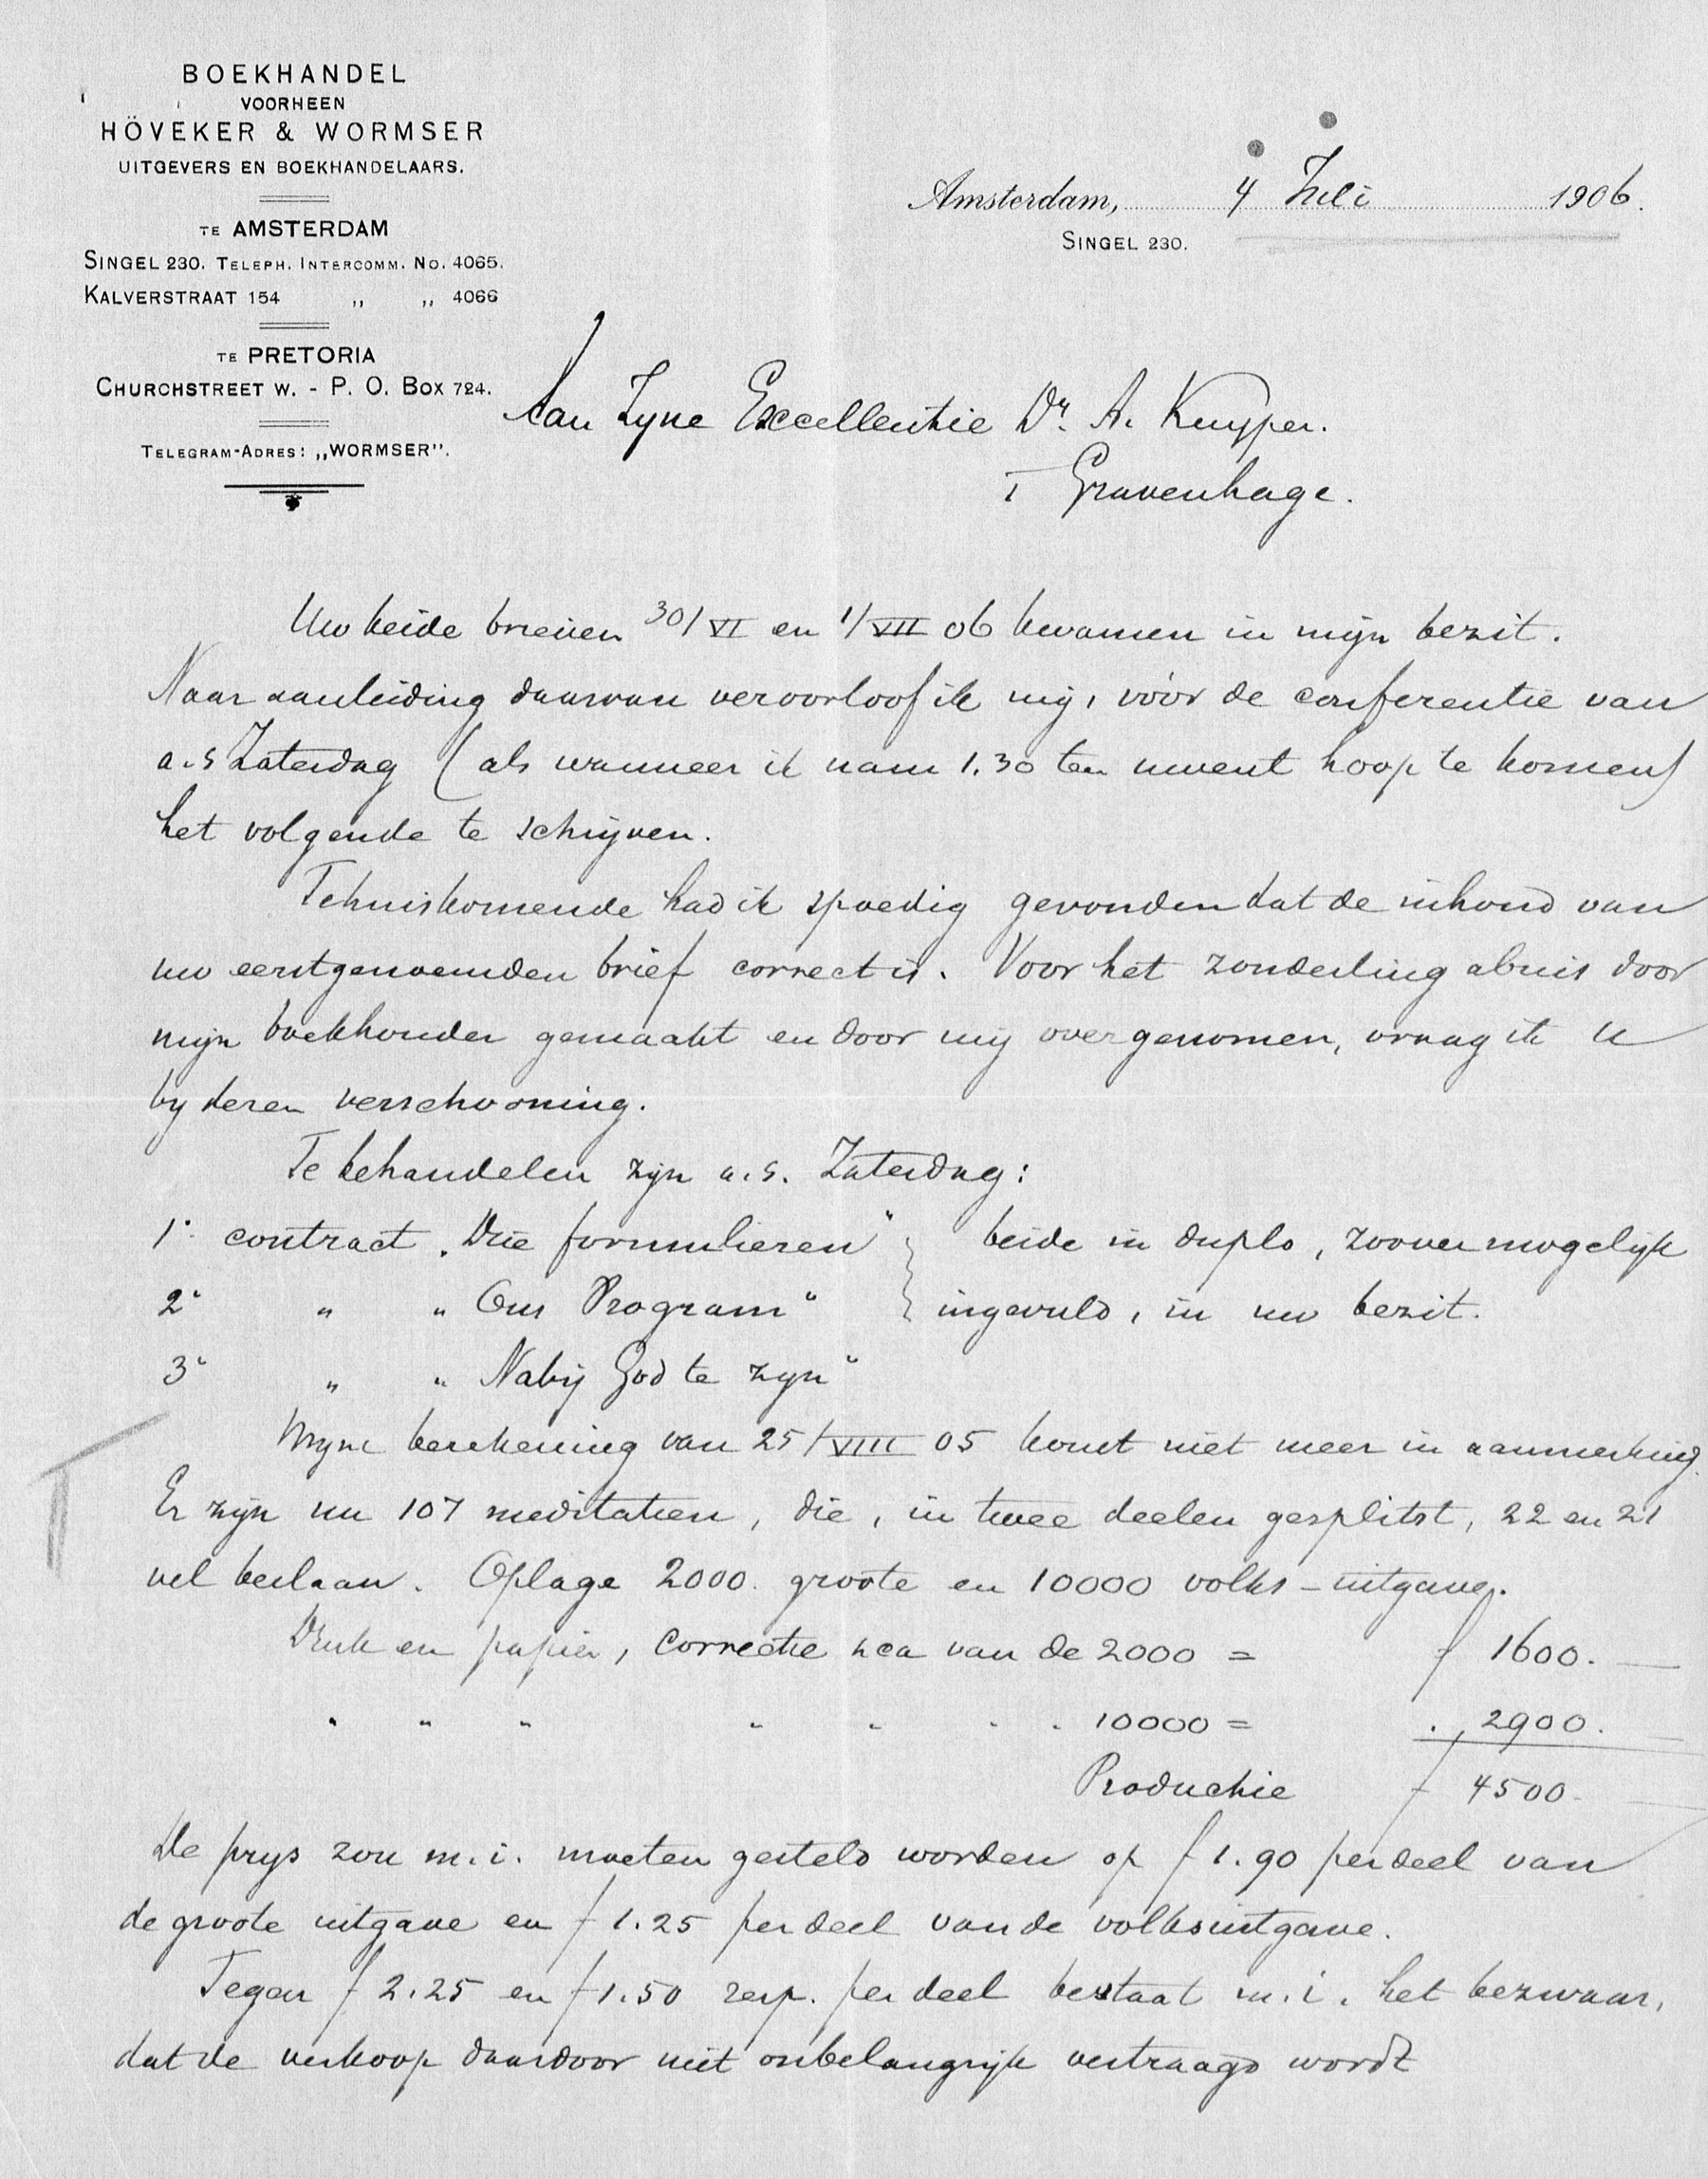 BOEKHANDEL
VOORHEEN
HÖVEKER & WORMSER
UITGEVERS EN BOEKHANDELAARS.
TE AMSTERDAM
SINGEL 230. TELEPH. INTERCOMM. NO. 4065.
KALVERSTRAAT 154 „ „ 4066
TE PRETORIA
CHURCHSTREET W. - P. O. BOX 724.
TELEGRAM-ADRES: „WORMSER".
Amsterdam, 4 Juli 1906.
SINGEL 230.
Aan Zyne Excellentie Dr. A. Kuyper.
Gravenhage.
Uw beide brieven 30/VI en 1/VII 06 kwamen in mijn bezit.
Naar aanleiding daarvan veroorloof ik mij, vóór de conferentie van
a.s Zaterdag (als wanneer ik nam 1.30 ten uwent hoop te komen)
het volgende te schrijven.
Tehuiskomende had ik spoedig gevonden dat de inhoud van
uw eerstgenoemden brief correct is. Voor het zonderling abuis door
mijn boekhouder gemaakt en door mij overgenomen, vraag ik U
by dezen verschooning.
Te behandelen zijn a.s. Zaterdag:
1° contract „Drie formulieren" } beide in duplo, zoover mogelijk
2° " " Ons Program" } ingevuld, in uw bezit.
3° " " Nabij God te zyn"
Myne berekening van 25/VIII 05 komt niet meer in aanmerking.
Er zijn nu 107 meditatien, die, in twee deelen gesplitst, 22 en 21
vel beslaan. Oplage 2000 groote en 10000 volks-uitgave.
Druk en papier, correctie van de 2000 = f 1600.—
" " " " " " " 10000 = " 2900.
Productie f 4500.
De prys zou m.i. moeten gesteld worden op f 1.90 per deel van
de groote uitgave en f 1.25 per deel van de volksuitgave.
Tegen f 2.25 en f 1.50 resp. per deel bestaat m.i. het bezwaar,
dat de verkoop daardoor niet onbelangrijk vertraagd wordt